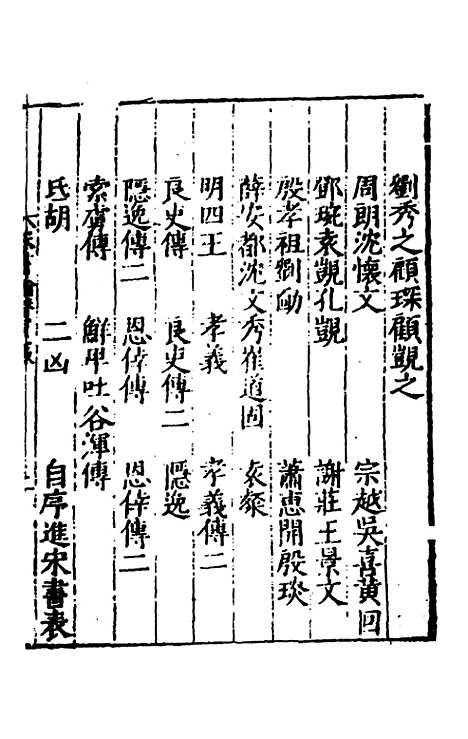 劉秀之顧琛顧覬之
周朗沈懷文　宗越吳喜黃回
鄧琬袁覬孔覬　謝莊王景文
殷孝祖劉勔　蕭惠開殷琰
薛安都沈文秀崔道固　袁粲
明四王　孝義　孝義傳二
良史傳　良史傳二　隱逸
隱逸傳二　恩倖傳　恩倖傳二
索虜傳　鮮卑吐谷渾傳
氐胡　二凶　自序進宋書表